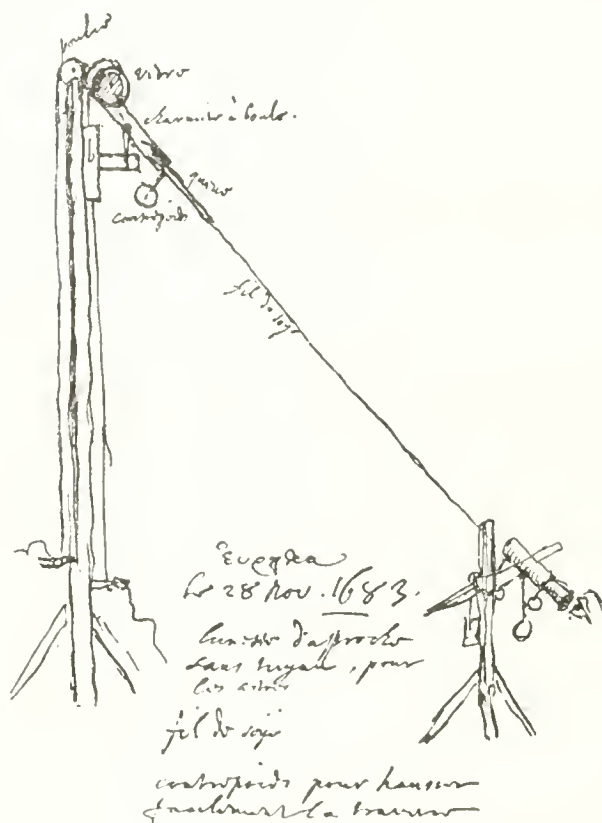 poulie
vidro
charniere à boule.
contrepoids
fil de soye
ἑυρηκα
le 28 Nov. 1683.
lunette d'approche
sans tuyau, pour
les astres
fil de soye
contrepoids pour hausser
facilement la